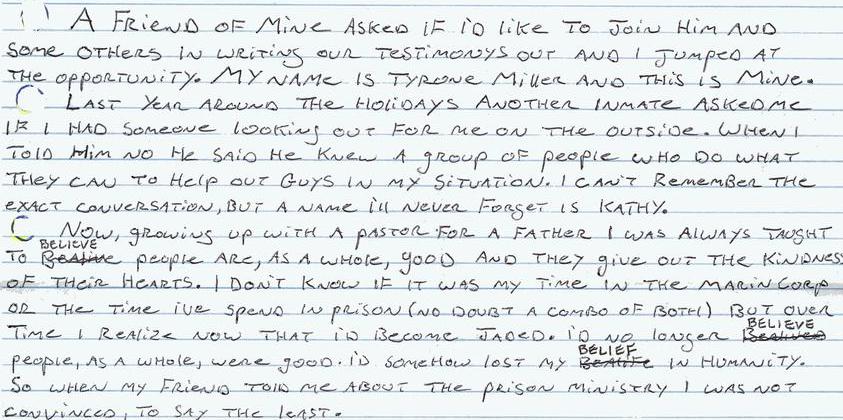 A Friend of Mine Asked if i'd like to join Him and
some others in writing our testimonys out and I jumped at
the opportunity. My name is Tyrone Miller and this is Mine.
Last year around the Holidays another inmate asked me
if I had someone looking out for me on the outside. When I
told Him no He said He knew a group of people who do what
they can to Help out guys in my situation. I can't remember the
exact conversation, but a name ill never forget is Kathy.
Now, growing up with a pastor for a father I was always taught
BELIEVE
to Bealive people are, as a whole, good and they give out the kindness
of their hearts. I don't know if it was my time in the Marin Corp
or the time ive spend in prison (no doubt a combo of both) but over
BELIEVE
time I realize now that i'd become jaded. i'd no longer Bealived
BELIEF
people, as a whole, were good. i'd somehow lost my Bealife in humanity.
So when my friend told me about the prison ministry I was not
convinced, to say the least.